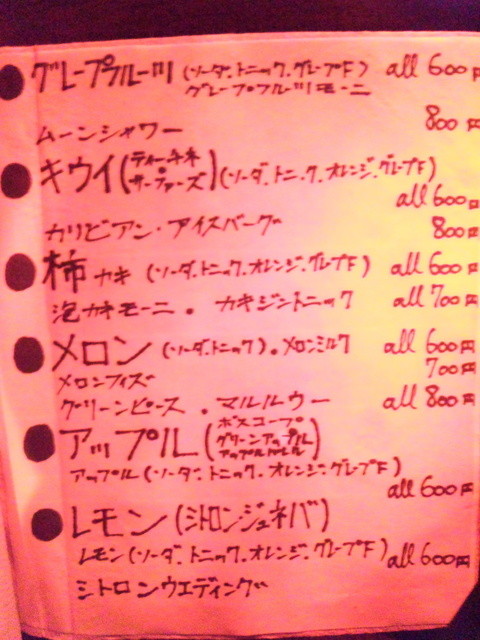 グレープフルーツ (ソーダ.トニック.グレープF) all 600円
グレープフルーツモーニ
ムーンシャワー 800円
キウイ(ティーチネ・サーファーズ)(ソーダ.トニック.オレンジ.グレプF)
all 600円
カリビアン・アイスバーグ 800円
柿カキ (ソーダ.トニック.オレンジ.グレプF) all 600円
泡カキモーニ . カキジントニック all 700円
メロン (ソーダ.トニック).メロンミルク all 600円
メロンフィズ 700円
グリーンピース . マルルウー all 800円
アップル(ボスコープ グリーンアップル)
アップル(ソーダ.トニック.オレンジ.グレプF)
all 600円
レモン (シトロンジュネバ)
レモン(ソーダ.トニック.オレンジ.グレプF) all 600円
シトロンウエディング